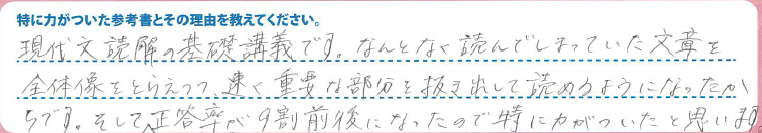 特に力がついた参考書とその理由を教えてください。
現代文読解の基礎講義です。なんとなく読んでしまっていた文章を
全体像をとらえつつ、速く重要な部分を抜き出して読めるようになったか
らです。そして正答率が9割前後になったので特に力がついたと思います